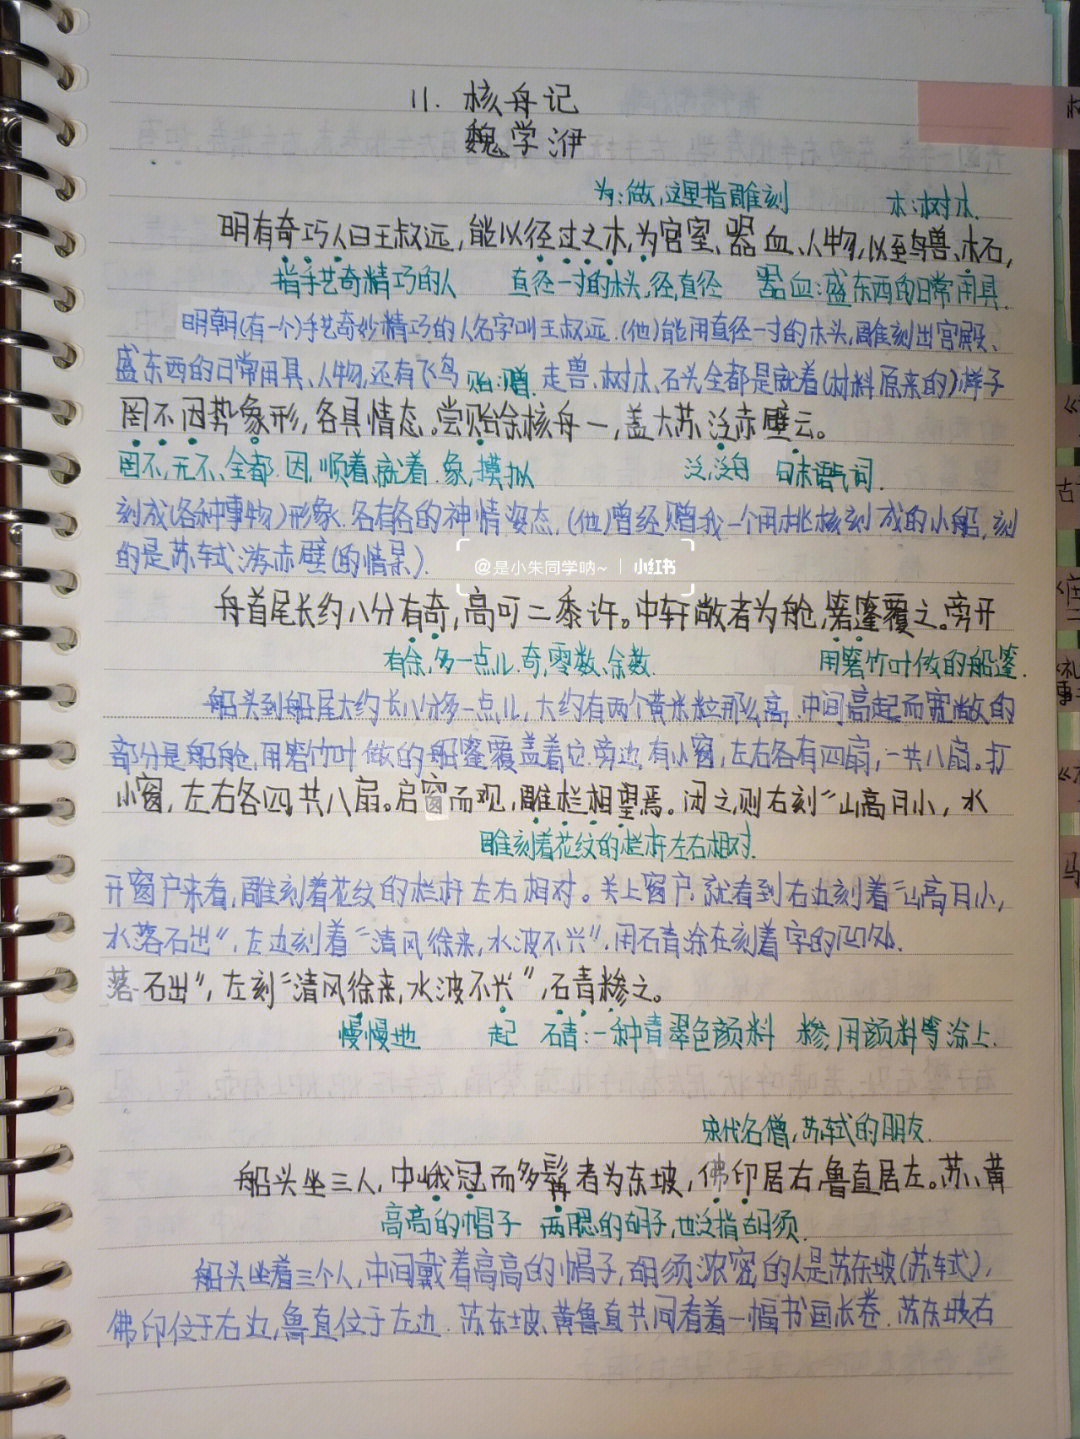 11. 核舟记
魏学洢
为:做,这里指雕刻 木:树木.
明有奇巧人曰王叔远,能以径寸之木,为宫室、器皿、人物,以至鸟兽、木石,
指手艺奇精巧的人 直径一寸的木头,径,直径 器皿:盛东西的日常用具.
明朝(有一个)手艺奇妙精巧的人名字叫王叔远.(他)能用直径一寸的木头,雕刻出宫殿、
盛东西的日常用具、人物,还有飞鸟 贻:赠. 走兽、树木、石头,全都是就着(材料原来的)样子
罔不因势象形,各具情态。尝贻余核舟一,盖大苏泛赤壁云。
罔不,无不、全都.因,顺着,就着.象,摸拟 泛,泛舟 句末语气词.
刻成(各种事物)形象.各有各的神情姿态.(他)曾经赠我一个用桃核刻成的小船,刻
的是苏轼游赤壁(的情景).
@是小朱同学呐~ | 小红书
舟首尾长约八分有奇,高可二黍许。中轩敞者为舱,箬篷覆之。旁开
有余,多一点儿.奇,零数、余数. 用箬竹叶做的船篷.
船头到船尾大约长八分多一点儿,大约有两个黄米粒那么高.中间高起而宽敞的
部分是船舱,用箬竹叶做的船篷覆盖着它.旁边有小窗,左右各有四扇,一共八扇。打
小窗,左右各四,共八扇。启窗而观,雕栏相望焉。闭之,则右刻“山高月小,水
雕刻着花纹的栏杆左右相对.
开窗户来看,雕刻着花纹的栏杆左右相对。关上窗户,就看到右边刻着“山高月小,
水落石出”,左边刻着“清风徐来,水波不兴”.用石青涂在刻着字的凹处.
落石出”,左刻“清风徐来,水波不兴”,石青糁之。
慢慢地 起 石青:一种青翠色颜料 糁,用颜料等涂上.
宋代名僧,苏轼的朋友.
船头坐三人,中峨冠而多髯者为东坡,佛印居右,鲁直居左。苏、黄
高高的帽子 两腮的胡子,也泛指胡须.
船头坐着三个人,中间戴着高高的帽子,胡须浓密的人是苏东坡(苏轼),
佛印位于右边,鲁直位于左边.苏东坡、黄鲁直共同看着一幅书画长卷.苏东坡右